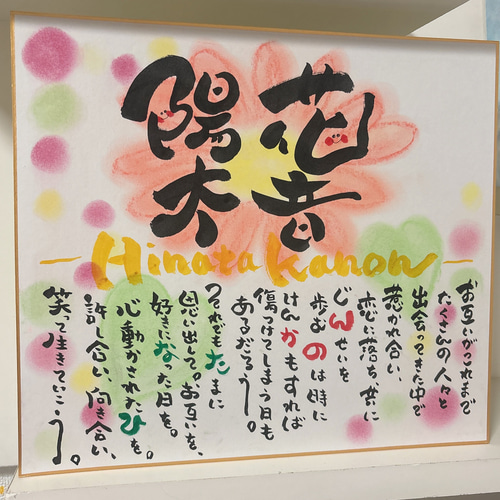 花音
陽太
Hinata Kanon
お互いがこれまで
たくさんの人々と
出会ってきた中で
惹かれ合い、
恋に落ち共に
じんせいを
歩むのは時に
けんかもすれば
傷つけてしまう日も
あるだろう。
それでもたまに
思い出して。お互いを、
好きになった日を。
心動かされたひを。
許し合い、向き合い、
笑って生きていこう。